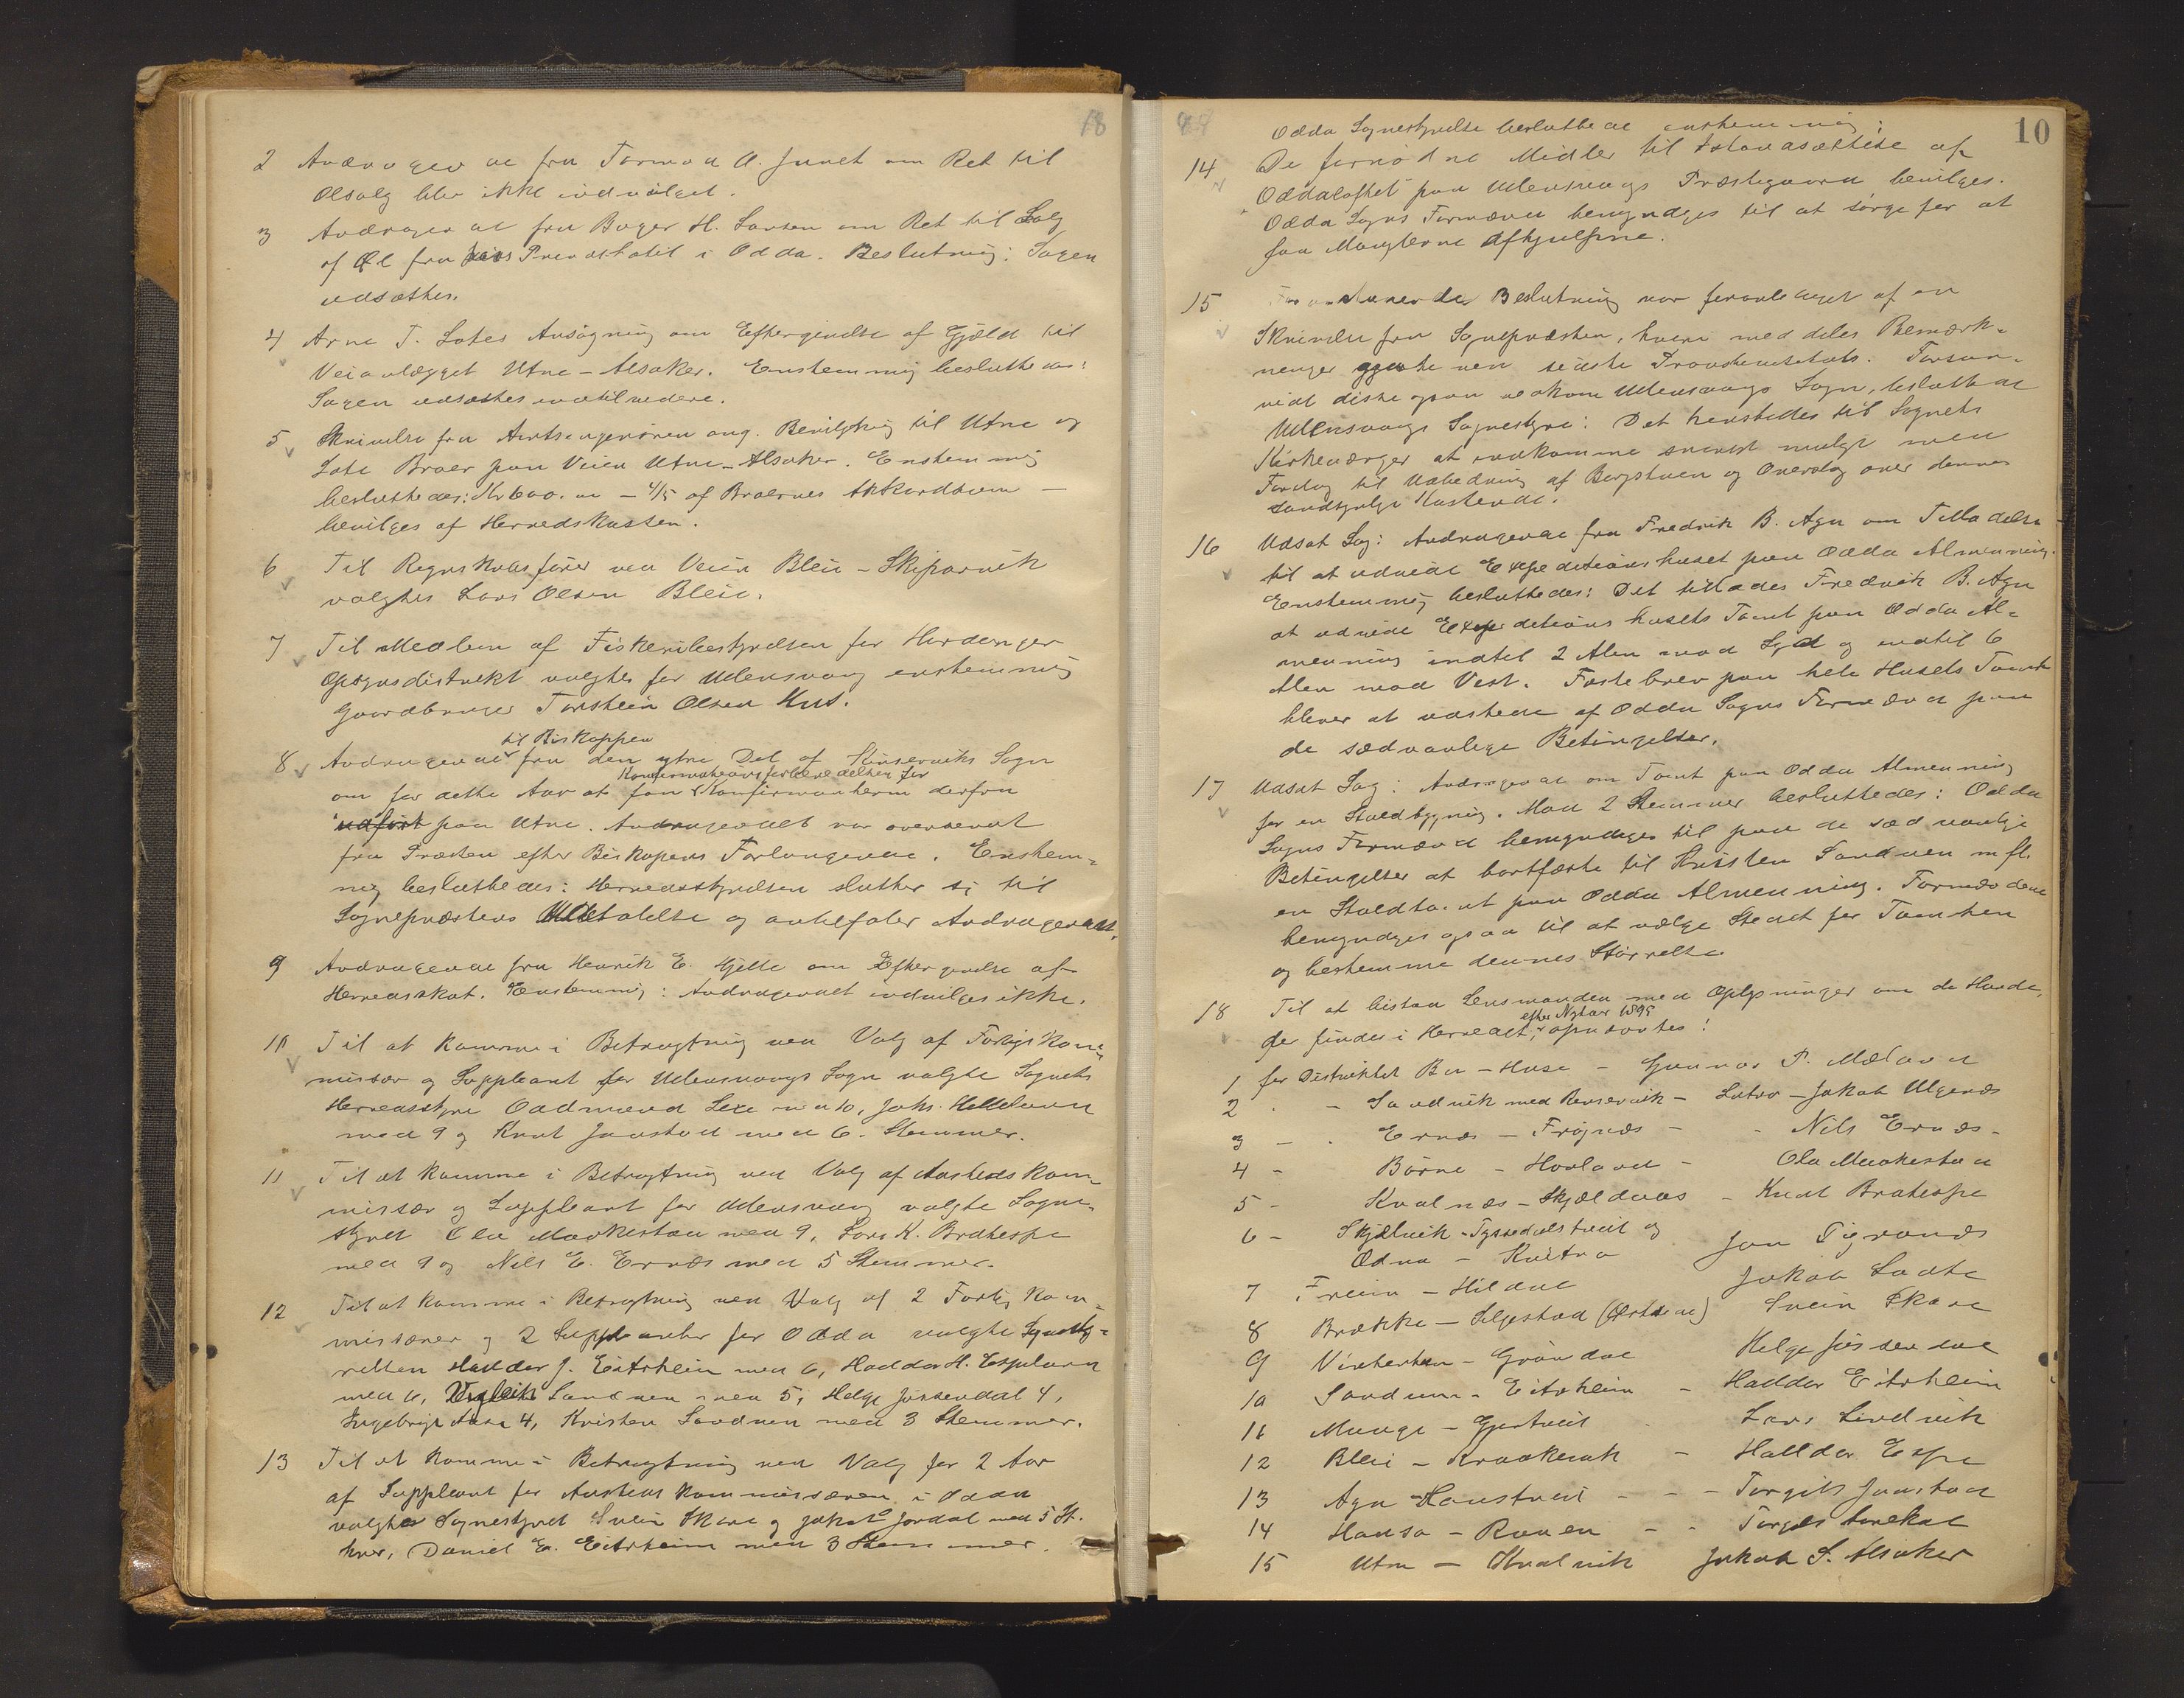 18
2 Andragende fra Tormod A. Junet om Ret til
Ølsalg blev ikke indvilget.
3 Andragende fra Bager H. Larsen om Ret til Salg
af Øl fra hans Privathotel i Odda. Beslutning: Sagen
udsættes.
4 Arne T. Lotes Ansøgning om Eftergivelse af Gjæld til
Veianlægget Utne - Alsaker. Enstemmig besluttedes:
Sagen udsættes indtilvidere.
5 Skrivelse fra Amtsingeniøren ang. Bevilgning til Utne og
Lote Broer paa Veien Utne - Alsaker. Enstemmig
besluttedes: Kr 600.00 - 4/5 af Broernes Akkordsum -
bevilges af Herredskassen.
6 Til Regnskabsfører ved Veien Bleie - Skiparvik
valgtes Lars Olsen Bleie.
7 Til Medlem af Fiskeribestyrelsen for Hardanger
Opsynsdistrikt valgtes for Ullensvang enstemmig
Gaardbruger Torstein Olsen Hus.
til Biskoppen
8 Andragende fra den ytre Del af Kinserviks Sogn
Konfirmationsforberedelsen for
om for dette Aar at faa Konfirmanterne derfra
udført paa Utne. Andragendet var oversendt
fra Præsten efter Biskopens Forlangende. Enstem-
mig besluttedes: Herredsstyrelsen slutter si til
Sognepræstens Udtalelse og anbefaler Andragendet.
9 Andragende fra Henrik E. Hjelle om Eftergivelse af
Herredsskat. Enstemmig: Andragendet indvilges ikke.
10 Til at komme i Betragtning ved Valg af Forligskom-
missær og Suppleant for Ullensvangs Sogn valgte Sognets
Herredsstyre Oddmund Lexe med 10, Johs. Helleland
med 9 og Knut Jaastad med 6. Stemmer.
11 Til at komme i Betragtning ved Valg af Anstedskom-
missær og Suppleant for Ullensvang valgte Sogne-
styret Ola Maakestad med 9, Lars K. Bratespe
med 9 og Nils E. Ernæs med 5 Stemmer.
12 Til at komme i Betragtning ved Valg af 2 Forligskom-
missærer og 2 Suppleanter for Odda valgte Sognesty-
relsen Haldor J. Eitrheim med 6, Haddor H. Espeland
med 6, Sandven med 5, Helge Jøsendal 4,
Ingebrigt Aase 4, Kristen Sandven med 3 Stemmer.
13 Til at komme i Betragtning ved Valg for 2 Aar
af Suppleant for Anstedskommissæren i Odda
valgtes Sognestyret Svein Skare og Jakob Jordal med 5 St.
hver, Daniel E. Eitrheim med 3 Stemmer.
10
Odda Sognestyrelse besluttede enstemmig:
14 De fornødne Midler til Istandsættelse af
Oddaloftet paa Ullensvangs Præstegaard bevilges.
Odda Sogns Formænd bemyndiges til at sørge for at
faa Manglerne afhjulpne.
15 Beslutning var foranlediget af en
Skrivelse fra Sognepræsten, hvori meddeles Bemærk-
ninger gjorte ved sidste Provstevisitats. Forsaa-
vidt disse ogsaa vedkom Ullensvangs Sogn, besluttede
Ullensvangs Sognestyre: Det henstilles til Sognets
Kirkeværger at indkomme snarest muligt med
Forslag til Udbedring af Borgstuen og Overslag over dennes
sandsynlige Kostende.
16 Udsat Sag: Andragende fra Fredrik B. Aga om Tilladelse
til at udvide Expeditionshuset paa Odda Almenning.
Enstemmig besluttedes: Det tillades Fredrik B. Aga
at udvide Expeditionshusets Tomt paa Odda Al-
menning indtil 2 Alen mod Syd og indtil 6
Alen mod Vest. Festebrev paa hele Husets Tomt
bliver at udstede af Odda Sogns Formænd paa
de sædvanlige Betingelser.
17 Udsat Sag: Andragende om Tomt paa Odda Almenning
for en Staldbygning. Mod 2 Stemmer besluttedes: Odda
Sogns Formænd bemyndiges til paa de sædvanlige
Betingelser at bortfæste til Kristen Sandven m fl.
en Staldtomt paa Odda Almenning. Formændene
bemyndiges ogsaa til at vælge Stedet for Tomten
og bestemme dennes Størrelse.
18 Til at bistaa Lensmanden med Oplysninger om de Hunde,
efter Nytaar 1899
der findes i Herredet, opnævntes:
1 for Distriktet Bu - Huse - Gunnar P. Mæland
2 - - Sandvik med - Lutro - Jakob Ulgenæs
3 - - Ernæs - Frøynæs - - Nils Ernæs
4 - Børve - Hovland - Ola Maakestad
5 - Kvalnæs - Skjældaas - Knut Bratespe
6 - Skjelvik - Tyssedalstveit og
Odna - Kvitno Jon Digranæs
7 Freim - Hildal Jakob Laate
8 Brække - Seljestad (Østdal) Svein Skare
9 Vintertun - Grøndal Helge Jøsendal
10 Sandven - Eitrheim - Haddor Eitrheim
11 Mauge - Gjertveit Lars Lindvik
12 Bleie - Kraakevik - Halldor Espe
13 Aga - Haustveit - - - Torgils Jaastad
14 Hauso - Raaen - - Torgils Arekol
15 Utne - Kvalvik Jakob S. Alsaker